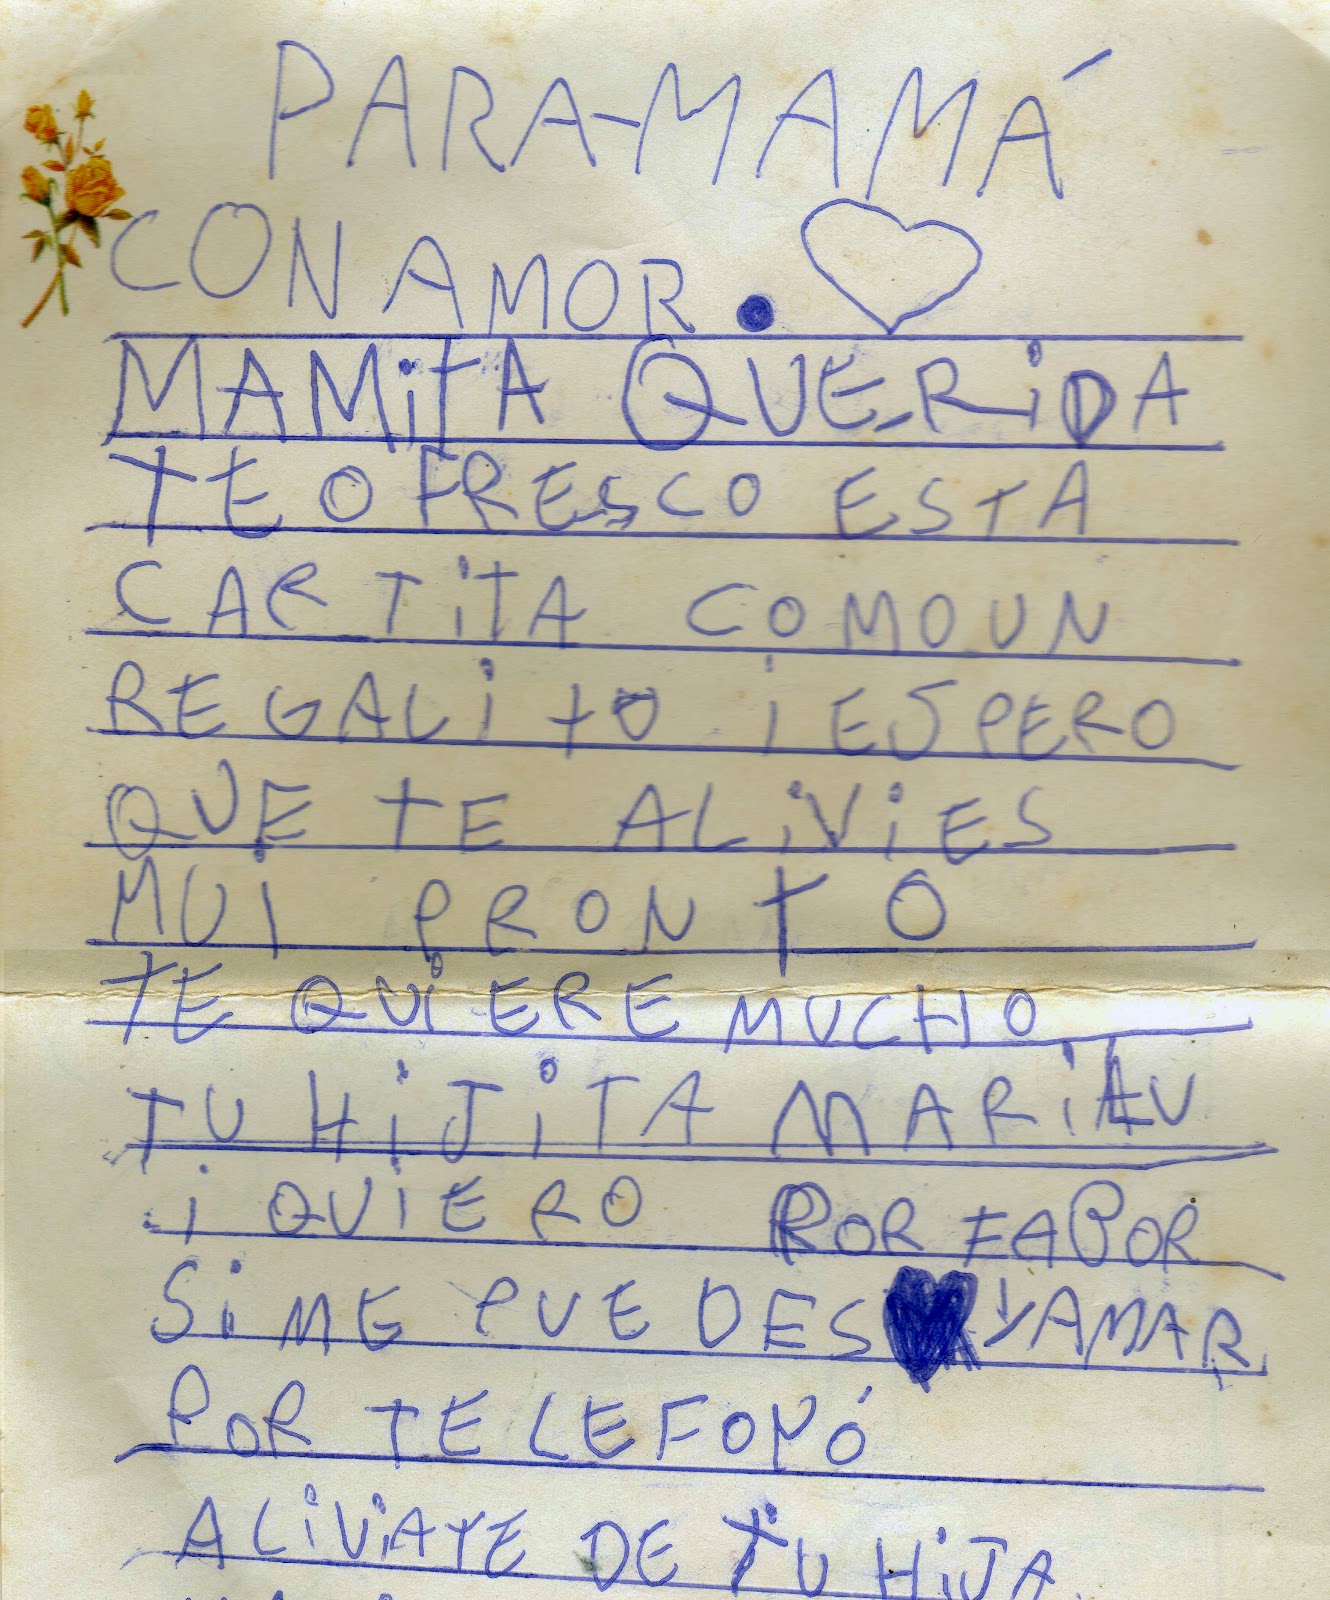 PARA-MAMÁ
CON AMOR.
MAMiTA QUERiDA
TE OFRESCO ESTA
CARTiTA COMO UN
REGALiTO i ESPERO
QUE TE ALiViES
MUi PRONTO
TE QUiERE MUCHO
TU HiJiTA MARiLU
i QUiERO POR FABOR
Si ME PUEDES YAMAR
POR TELEFONÓ
ALiViATE DE TU HiJA